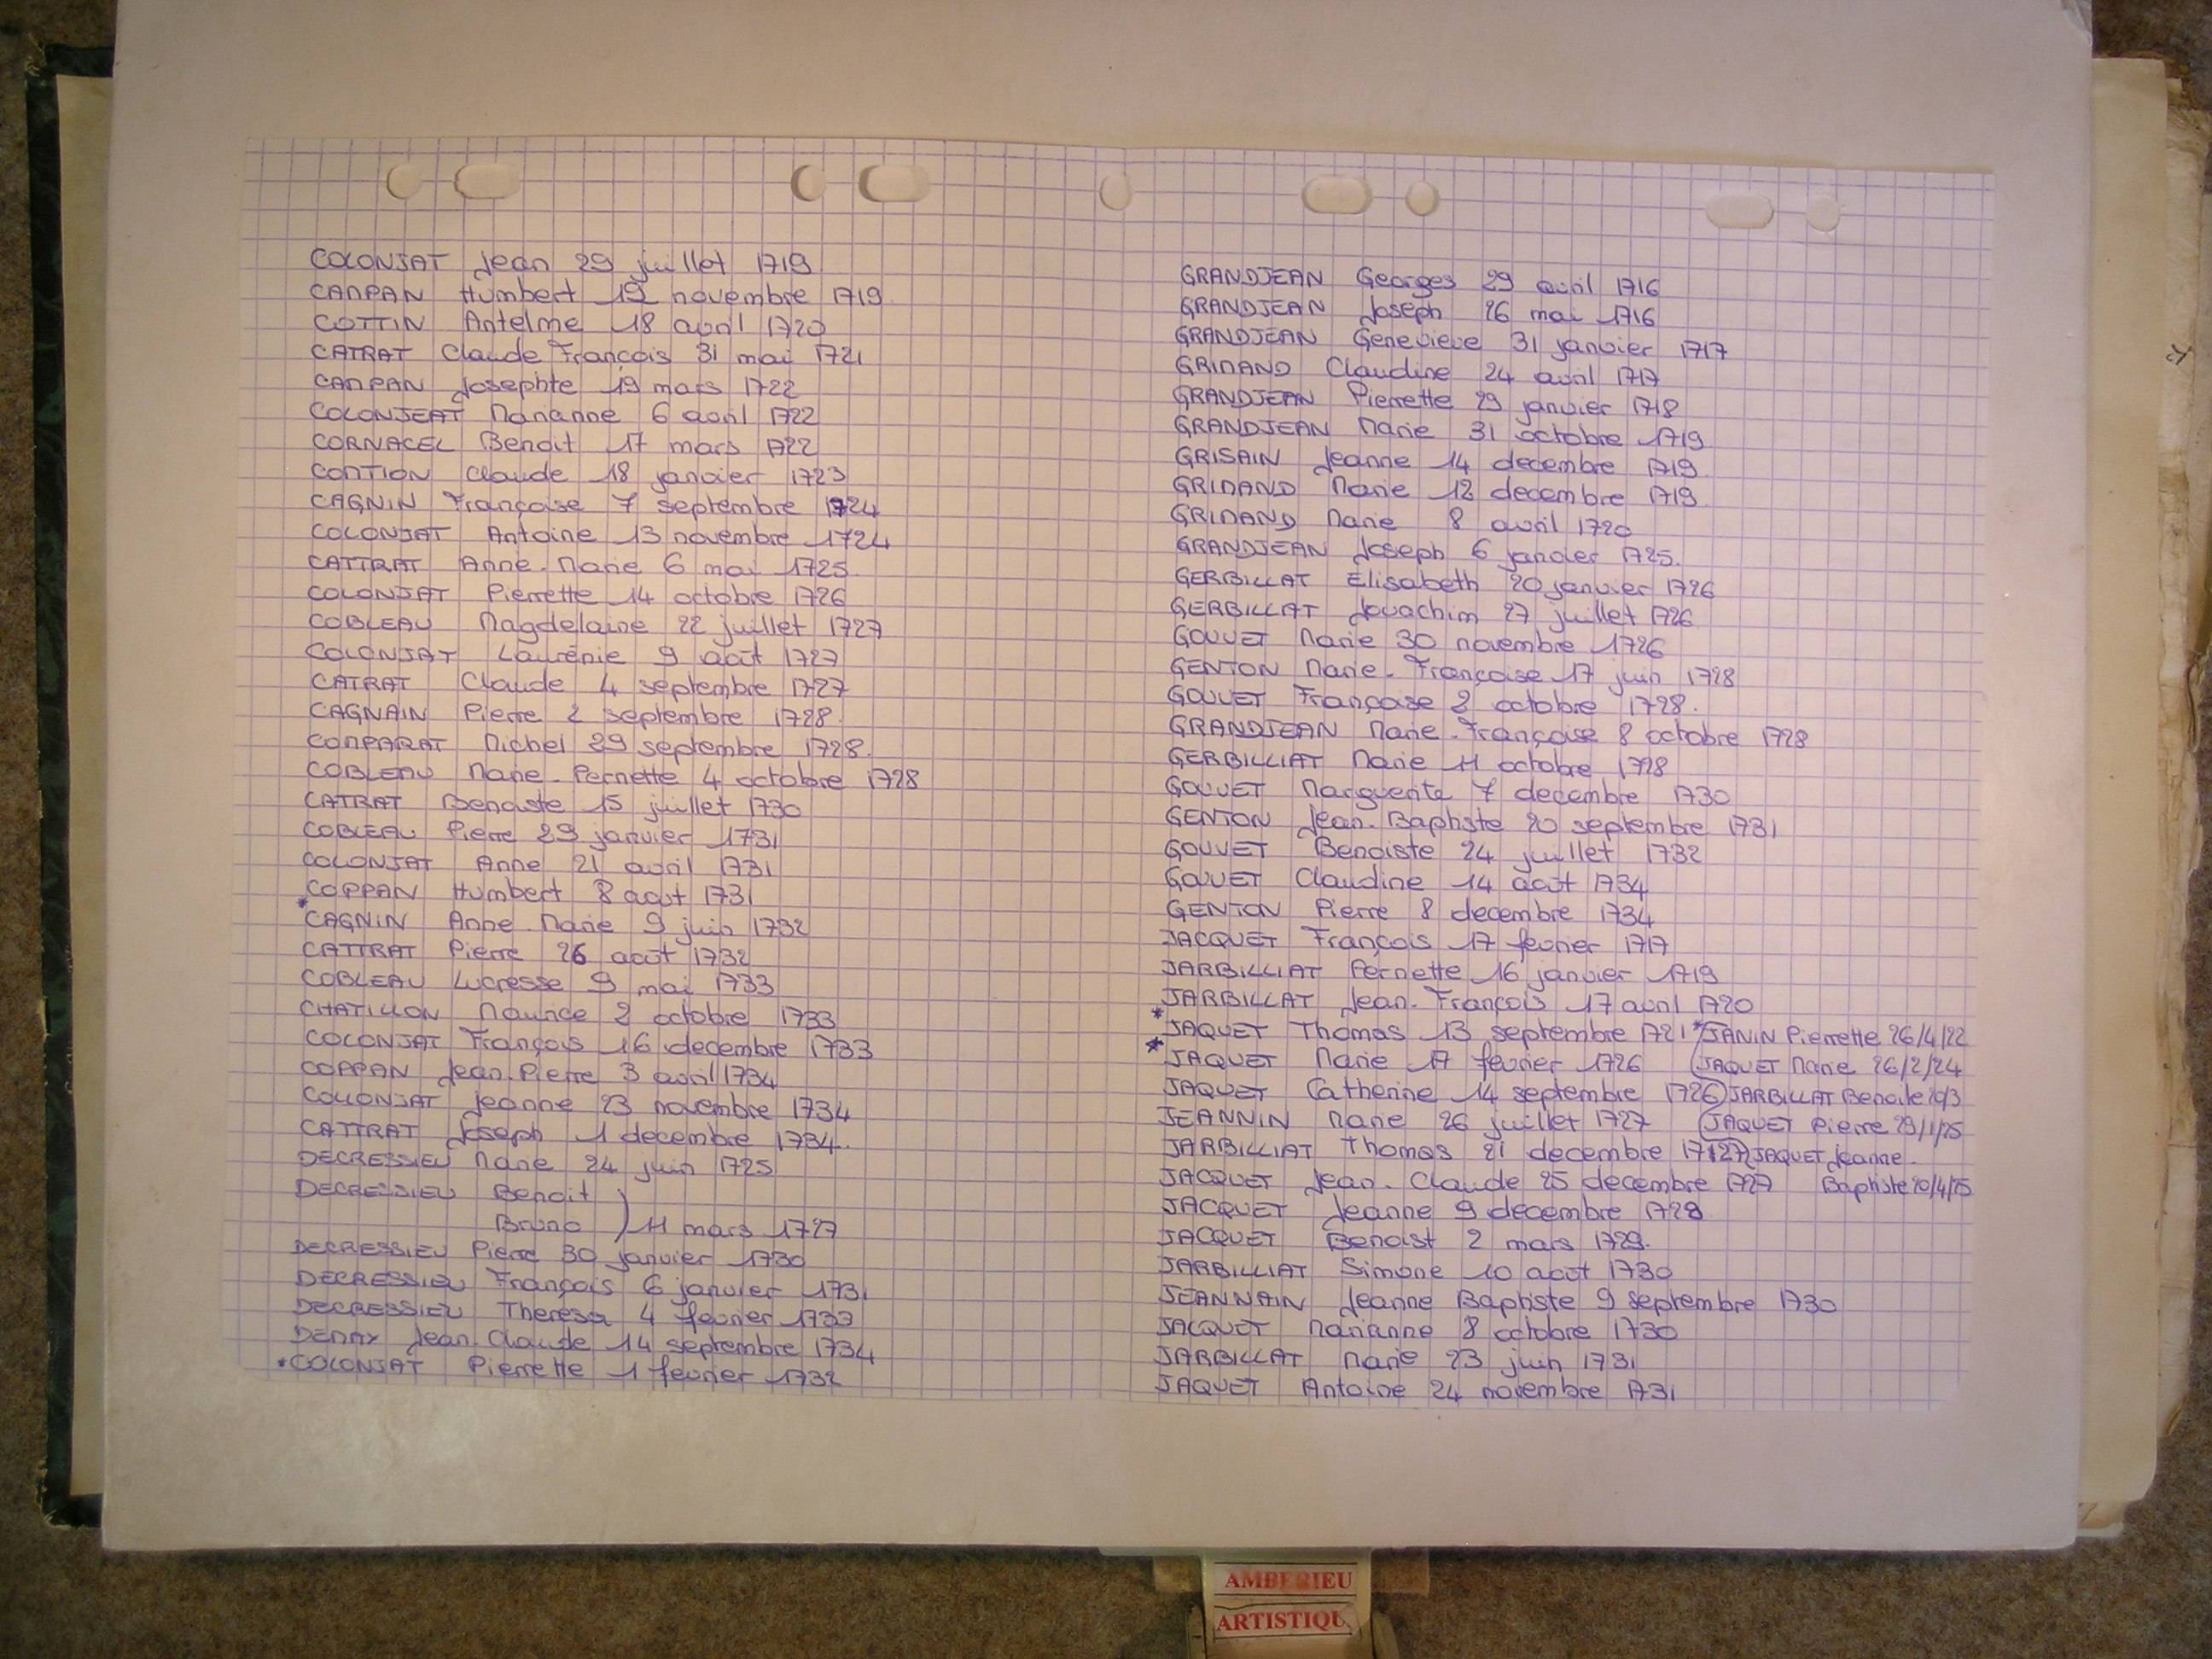 COLONJAT Jean 29 juillet 1719
CAMPAN Humbert 19 novembre 1719
COTTIN Antelme 18 avril 1720
CATRAT Claude François 31 mai 1721
CAMPAN Josephte 19 mars 1722
COLONJEAT Marianne 6 avril 1722
CORNACEL Benoit 17 mars 1722
COMTION Claude 18 janvier 1723
CAGNIN Françoise 7 septembre 1724
COLONJAT Antoine 13 novembre 1724
CATTRAT Anne-Marie 6 mai 1725
COLONJAT Pierrette 14 octobre 1726
COBLEAU Magdelaine 22 juillet 1727
COLONJAT Laurenie 9 août 1727
CATRAT Claude 4 septembre 1727
CAGNAIN Pierre 2 septembre 1728.
COMPARAT Michel 29 septembre 1728.
COBLEAU Marie-Pernette 4 octobre 1728
CATRAT Benoiste 15 juillet 1730
COBLEAU Pierre 29 janvier 1731
COLONJAT Anne 21 avril 1731
COPPAN Humbert 8 août 1731
* CAGNIN Anne Marie 9 juin 1732
CATTRAT Pierre 26 août 1732
COBLEAU Lucresse 9 mai 1733
CHATILLON Maurice 2 octobre 1733
COLONJAT François 16 decembre 1733
COPPAN Jean-Pierre 3 avril 1734
COLLONJAT Jeanne 23 novembre 1734
CATTRAT Joseph 1 decembre 1734.
DECRESSIEU Marie 24 juin 1725
DECRESSIEU Benoit )
Bruno ) 11 mars 1727
DECRESSIEU Pierre 30 janvier 1730
DECRESSIEU François 6 janvier 1731
DECRESSIEU Theresa 4 fevrier 1733
DEMAY Jean-Claude 14 septembre 1734
* COLONJAT Pierrette 1 fevrier 1732
GRANDJEAN Georges 29 avril 1716
GRANDJEAN Joseph 26 mai 1716
GRANDJEAN Genevieve 31 janvier 1717
GRIMAND Claudine 24 avril 1717
GRANDJEAN Pierrette 29 janvier 1718
GRANDJEAN Marie 31 octobre 1719
GRISAIN Jeanne 14 decembre 1719.
GRIMAND Marie 12 decembre 1719.
GRIMAND Marie 8 avril 1720
GRANDJEAN Joseph 6 janvier 1725.
GERBILLAT Elisabeth 20 janvier 1726
GERBILLAT Jouachim 27 juillet 1726
GOUVET Marie 30 novembre 1726
GENTON Marie-Françoise 17 juin 1728
GOUVET Françoise 2 octobre 1728.
GRANDJEAN Marie-Françoise 8 octobre 1728
GERBILLIAT Marie 11 octobre 1728
GOUVET Marguerite 7 decembre 1730
GENTON Jean-Baptiste 20 septembre 1731
GOUVET Benoiste 24 juillet 1732
GOUVET Claudine 14 août 1734
GENTON Pierre 8 decembre 1734
JACQUET François 17 fevrier 1717
JARBILLIAT Pernette 16 janvier 1719
JARBILLAT Jean-François 17 avril 1720
* JAQUET Thomas 13 septembre 1721 * JANIN Pierrette 26/4/22
* JAQUET Marie 17 fevrier 1726 (JAQUET Marie 26/2/24
JAQUET Catherine 14 septembre 1726) JARBILLAT Benoite 20/3
JEANNIN Marie 26 juillet 1727 (JAQUET Pierre 29/1/25
JARBILLIAT Thomas 21 decembre 1727) JAQUET Jeanne-
JACQUET Jean-Claude 25 decembre 1727 Baptiste 20/4/25
JACQUET Jeanne 9 decembre 1728
JACQUET Benoist 2 mars 1729.
JARBILLIAT Simone 10 août 1730
JEANNAIN Jeanne Baptiste 9 septembre 1730
JACQUET Marianne 8 octobre 1730
JARBILLAT Marie 23 juin 1731
JAQUET Antoine 24 novembre 1731
AMBERIEU
ARTISTIQU